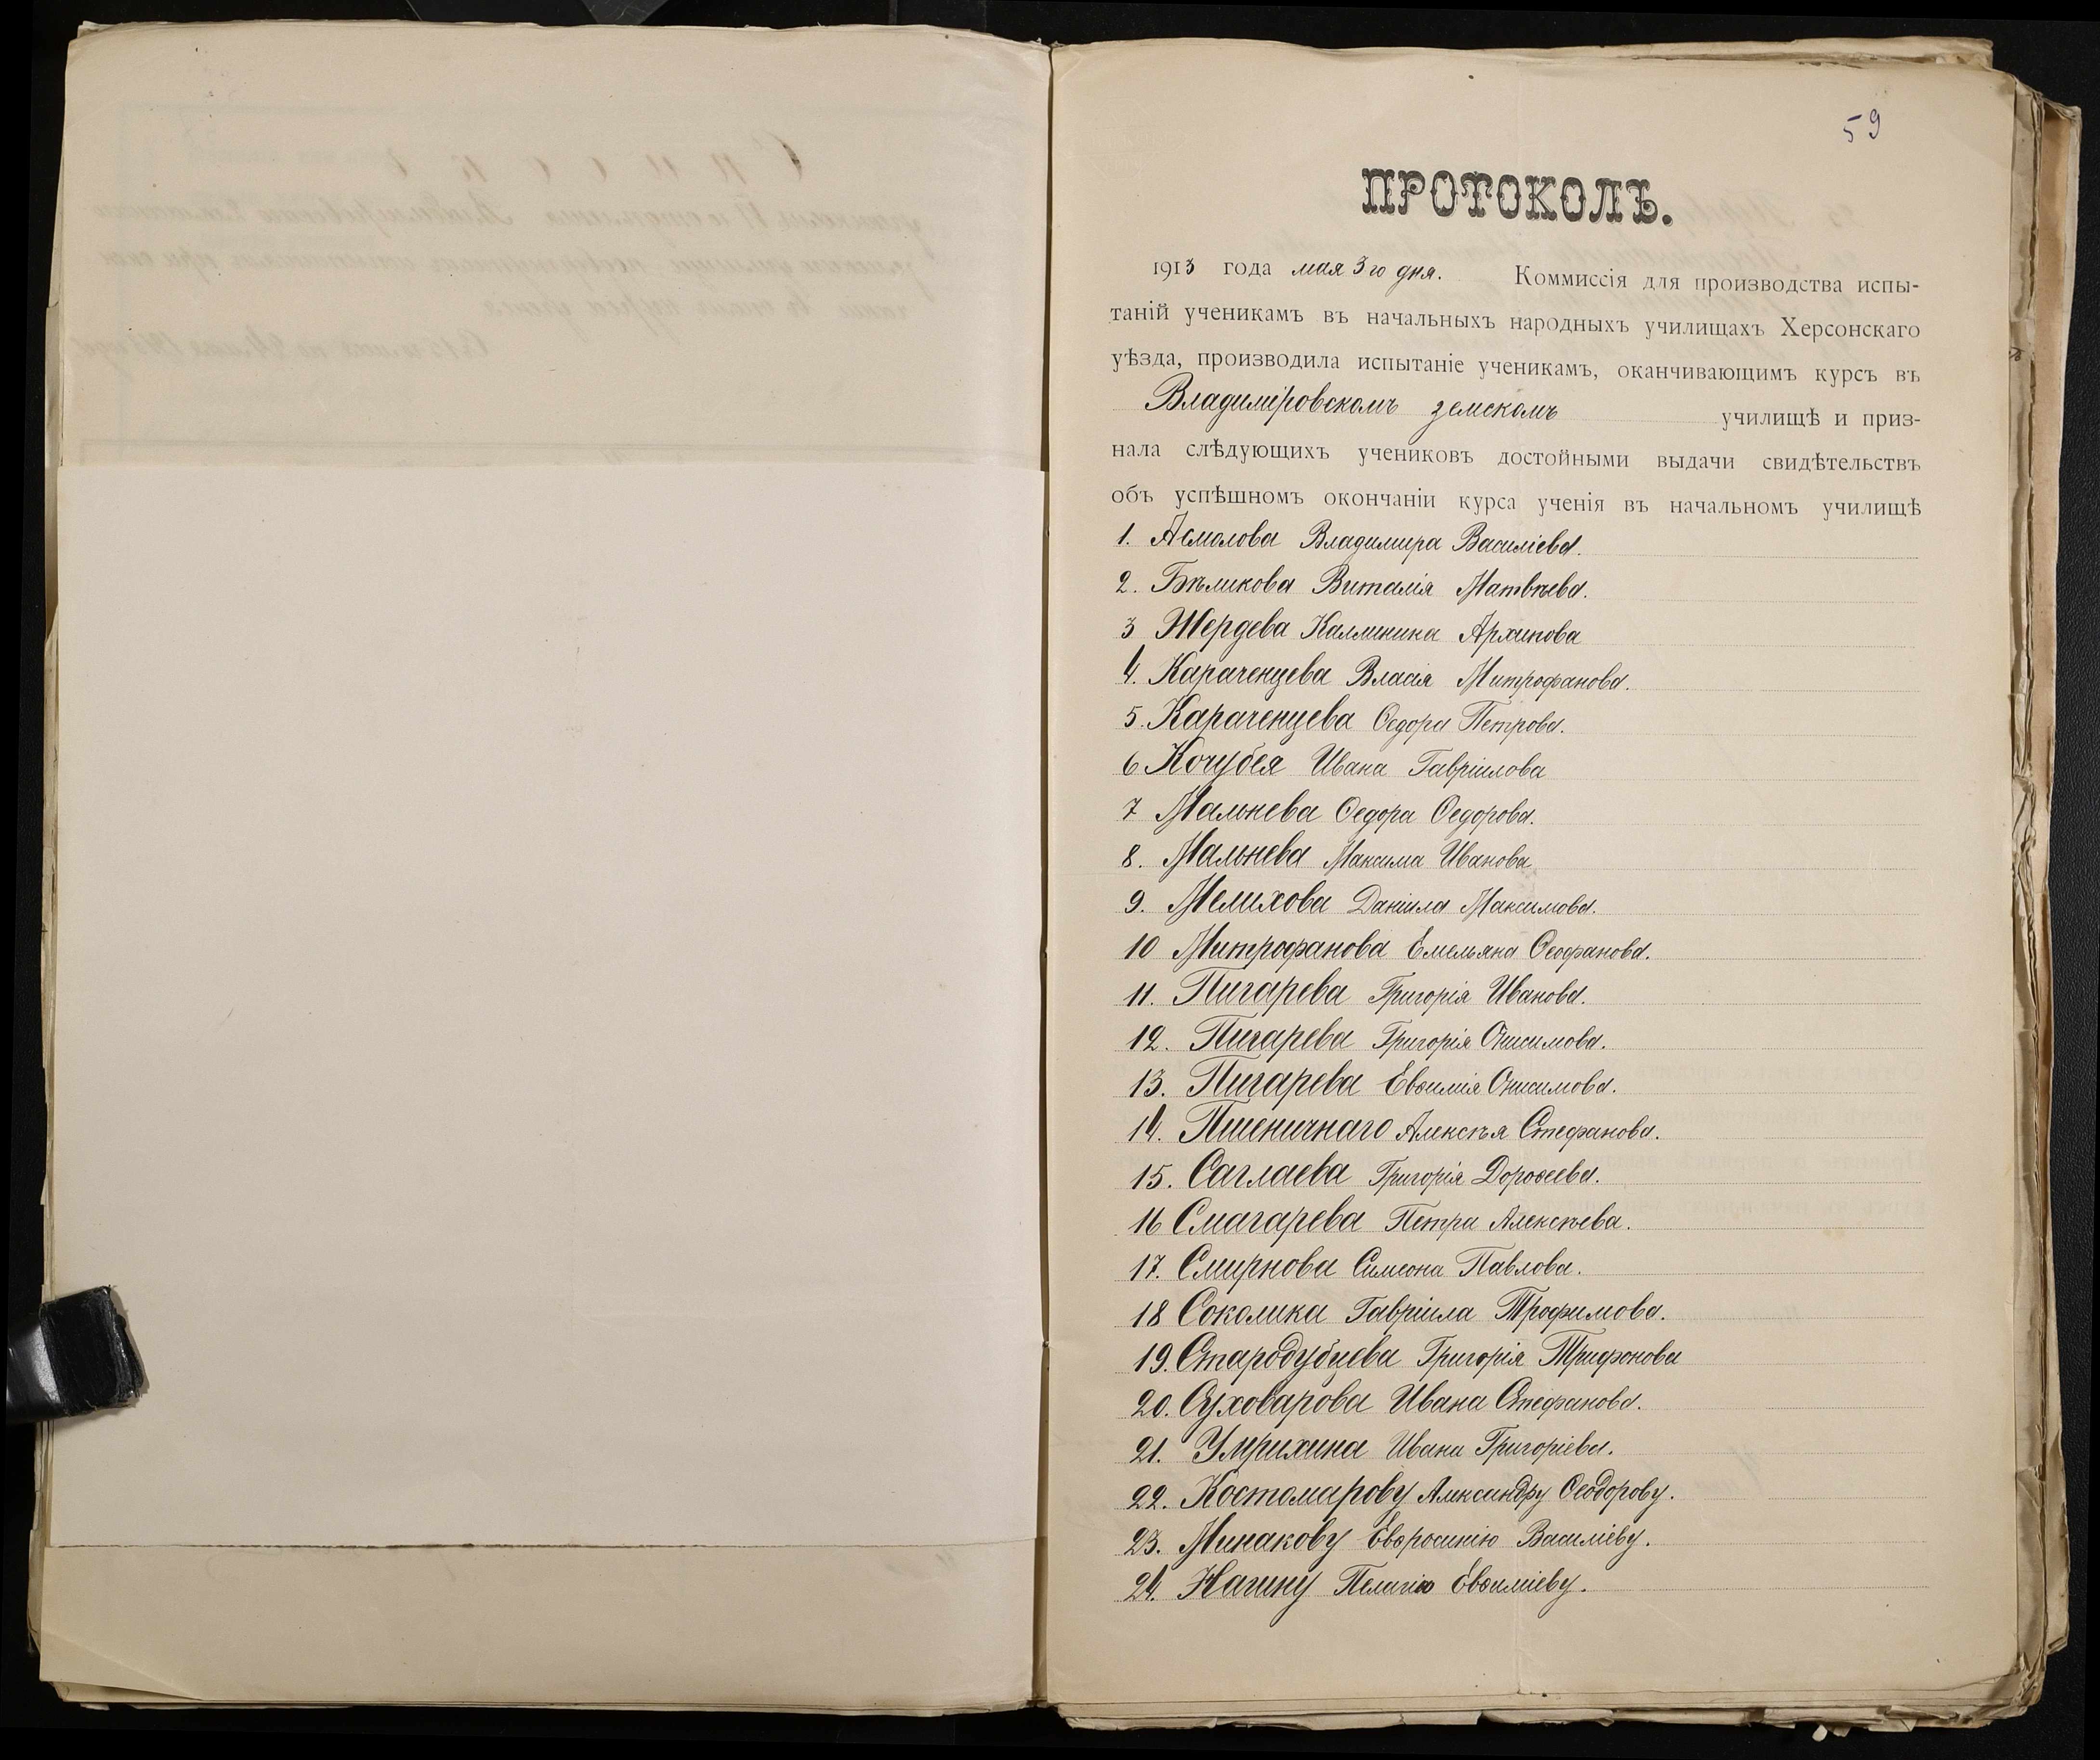 59
ПРОТОКОЛЪ.
1913 года мая 3го дня. Коммиссія для производства испы-
таній ученикамъ въ начальныхъ народныхъ училищахъ Херсонскаго
уѣзда, производила испытаніе ученикамъ, оканчивающимъ курсъ въ
Владиміровскомъ земскомъ училищѣ и приз-
нала слѣдующихъ учениковъ достойными выдачи свидѣтельствъ
объ успѣшномъ окончаніи курса ученія въ начальномъ училищѣ
1. Асмолова Владимира Василіева.
2. Бѣликова Виталія Матвѣева.
3 Жердева Калиника Архипова
4. Караченцева Власія Митрофанова.
5. Караченцева Ѳедора Петрова.
6 Кочубея Ивана Гавріилова
7 Мальнева Ѳедора Ѳедорова.
8. Мальнева Максима Иванова
9. Мелихова Даніила Максимова.
10 Митрофанова Емельяна Ѳеофанова.
11. Пигарева Григорія Иванова.
12. Пигарева Григорія Онисимова.
13. Пигарева Евѳимія Онисимова.
14. Пшеничнаго Алексѣя Стефанова.
15. Саглаева Григорія Дороѳеева.
16 Смагарева Петра Алексѣева.
17. Смирнова Симеона Павлова.
18 Соколика Гавріила Трофимова.
19. Стародубцева Григорія Трифонова
20. Суховарова Ивана Стефанова.
21. Умрихина Ивана Григоріева.
22. Костомарову Александру Ѳеодорову.
23. Минакову Евфросинію Василіеву.
24. Нагину Пелагію Евѳиміеву.